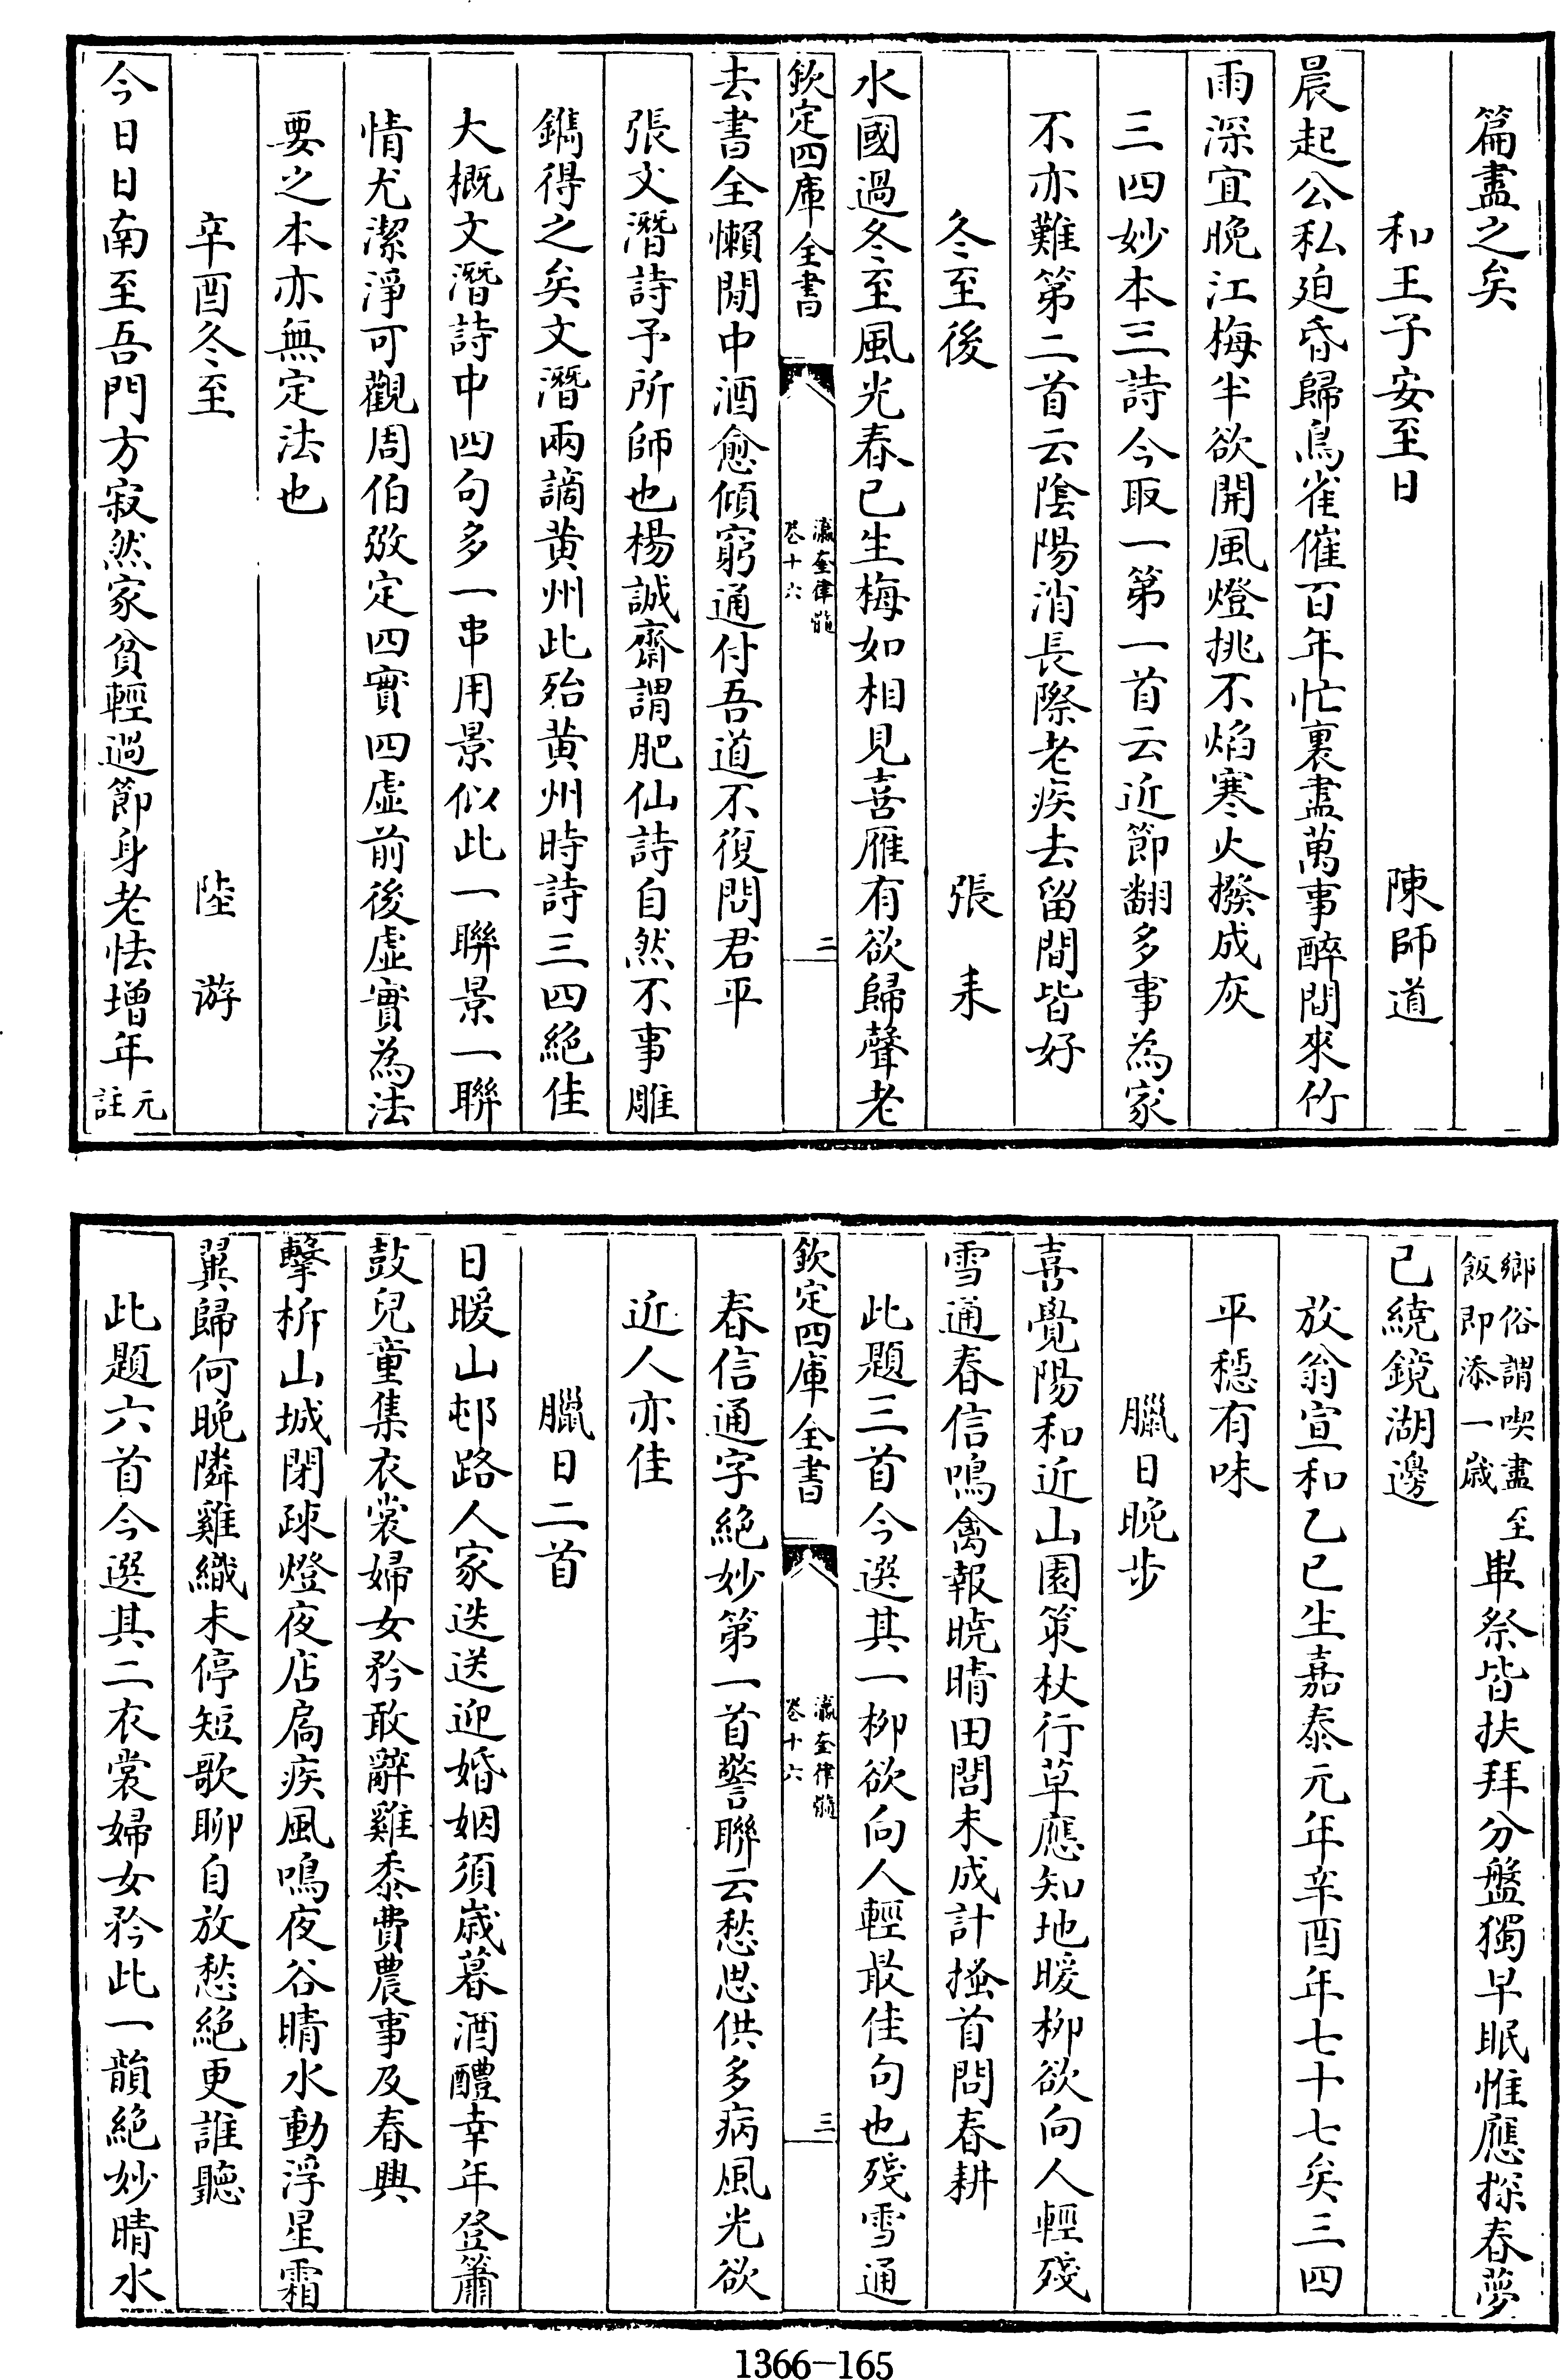 篇盡之矣
和王子安至日 陳師道
晨起公私迫昏歸鳥雀催百年忙裏盡萬事醉間來竹
雨深宜晚江梅半欲開風燈挑不焰寒火撥成灰
三四妙本三詩今取一第一首云近節翻多事為家
不亦難第二首云陰陽消長際老疾去留間皆好
冬至後 張耒
水國過冬至風光春已生梅如相見喜雁有欲歸聲老
欽定四庫全書 瀛奎律髓 卷十六 二
去書全懶閒中酒愈傾窮通付吾道不復問君平
張文潛詩予所師也楊誠齋謂肥仙詩自然不事雕
鐫得之矣文潛兩謫黄州此殆黄州時詩三四絶佳
大概文潛詩中四句多一串用景似此一聯景一聯
情尤潔淨可觀周伯弜定四實四虛前後虛實為法
要之本亦無定法也
辛酉冬至 陸游
今日日南至吾門方寂然家貧輕過節身老怯增年元註
鄉俗謂喫盡至飯即添一歲畢祭皆扶拜分盤獨早眠惟應探春夢
已繞鏡湖邊
放翁宣和乙巳生嘉泰元年辛酉年七十七矣三四
平穩有味
臘日晚步
喜覺陽和近山園策杖行草應知地暖柳欲向人輕殘
雪通春信鳴禽報曉晴田閭未成計搔首問春耕
此題三首今選其一柳欲向人輕最佳句也殘雪通
欽定四庫全書 瀛奎律髓 卷十六 三
春信通字絶妙第一首警聯云愁思供多病風光欲
近人亦佳
臘日二首
日暖山邨路人家迭送迎婚姻須歲暮酒醴幸年登簫
鼓兒童集衣裳婦女矜敢辭雞黍費農事及春興
擊柝山城閉疎燈夜店扃疾風鳴夜谷晴水動浮星霜
巽歸何晚隣雞織未停短歌聊自放愁絶更誰聽
此題六首今選其二衣裳婦女矜此一韻絶妙晴水
1366-165